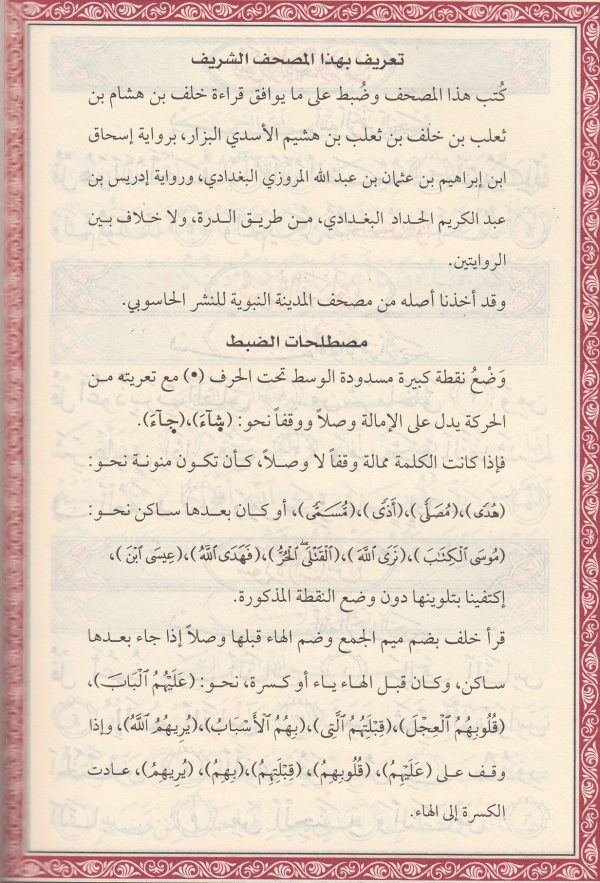 تعريف بهذا المصحف الشريف
كُتب هذا المصحف وضُبط على ما يوافق قراءة خلف بن هشام بن
ثعلب بن خلف بن ثعلب بن هشيم الأسدي البزار، برواية إسحاق
ابن إبراهيم بن عثمان بن عبد الله المروزي البغدادي، ورواية إدريس بن
عبد الكريم الحداد البغدادي، من طريق الدرة، ولا خلاف بين
الروايتين.
وقد أخذنا أصله من مصحف المدينة النبوية للنشر الحاسوبي.
مصطلحات الضبط
وَضْعُ نقطة كبيرة مسدودة الوسط تحت الحرف (•) مع تعريته من
الحركة يدل على الإمالة وصلاً ووقفاً نحو: (شآءَ)،(جآءَ).
فإذا كانت الكلمة ممالة وقفاً لا وصلاً، كأن تكون منونة نحو:
(هُدًى)،(مُصَلًّى)،(أَذًى)،(مُّسَمًّى)، أو كان بعدها ساكن نحو:
(مُوسَى ٱلْكِتَٰبَ)،(نَرَى ٱللَّهَ)،(ٱلْقَتْلَىۖ ٱلْحُرُّ)،(فَهَدَى ٱللَّهُ)،(عِيسَى ٱبْنَ)،
إكتفينا بتلوينها دون وضع النقطة المذكورة.
قرأ خلف بضم ميم الجمع وضم الهاء قبلها وصلاً إذا جاء بعدها
ساكن، وكان قبل الهاء ياء أو كسرة، نحو: (عَلَيْهُمُ ٱلْبَابَ)،
(قُلُوبِهُمُ ٱلْعِجْلَ)،(قِبْلَتِهُمُ ٱلَّتِى)،(بِهُمُ ٱلْأَسْبَابُ)،(يُرِيهُمُ ٱللَّهُ)، وإذا
وقف على (عَلَيْهِمُ)، (قُلُوبِهِمُ)، (قِبْلَتِهِمُ)،(بِهِمُ)، (يُرِيهِمُ)، عادت
الكسرة إلى الهاء.